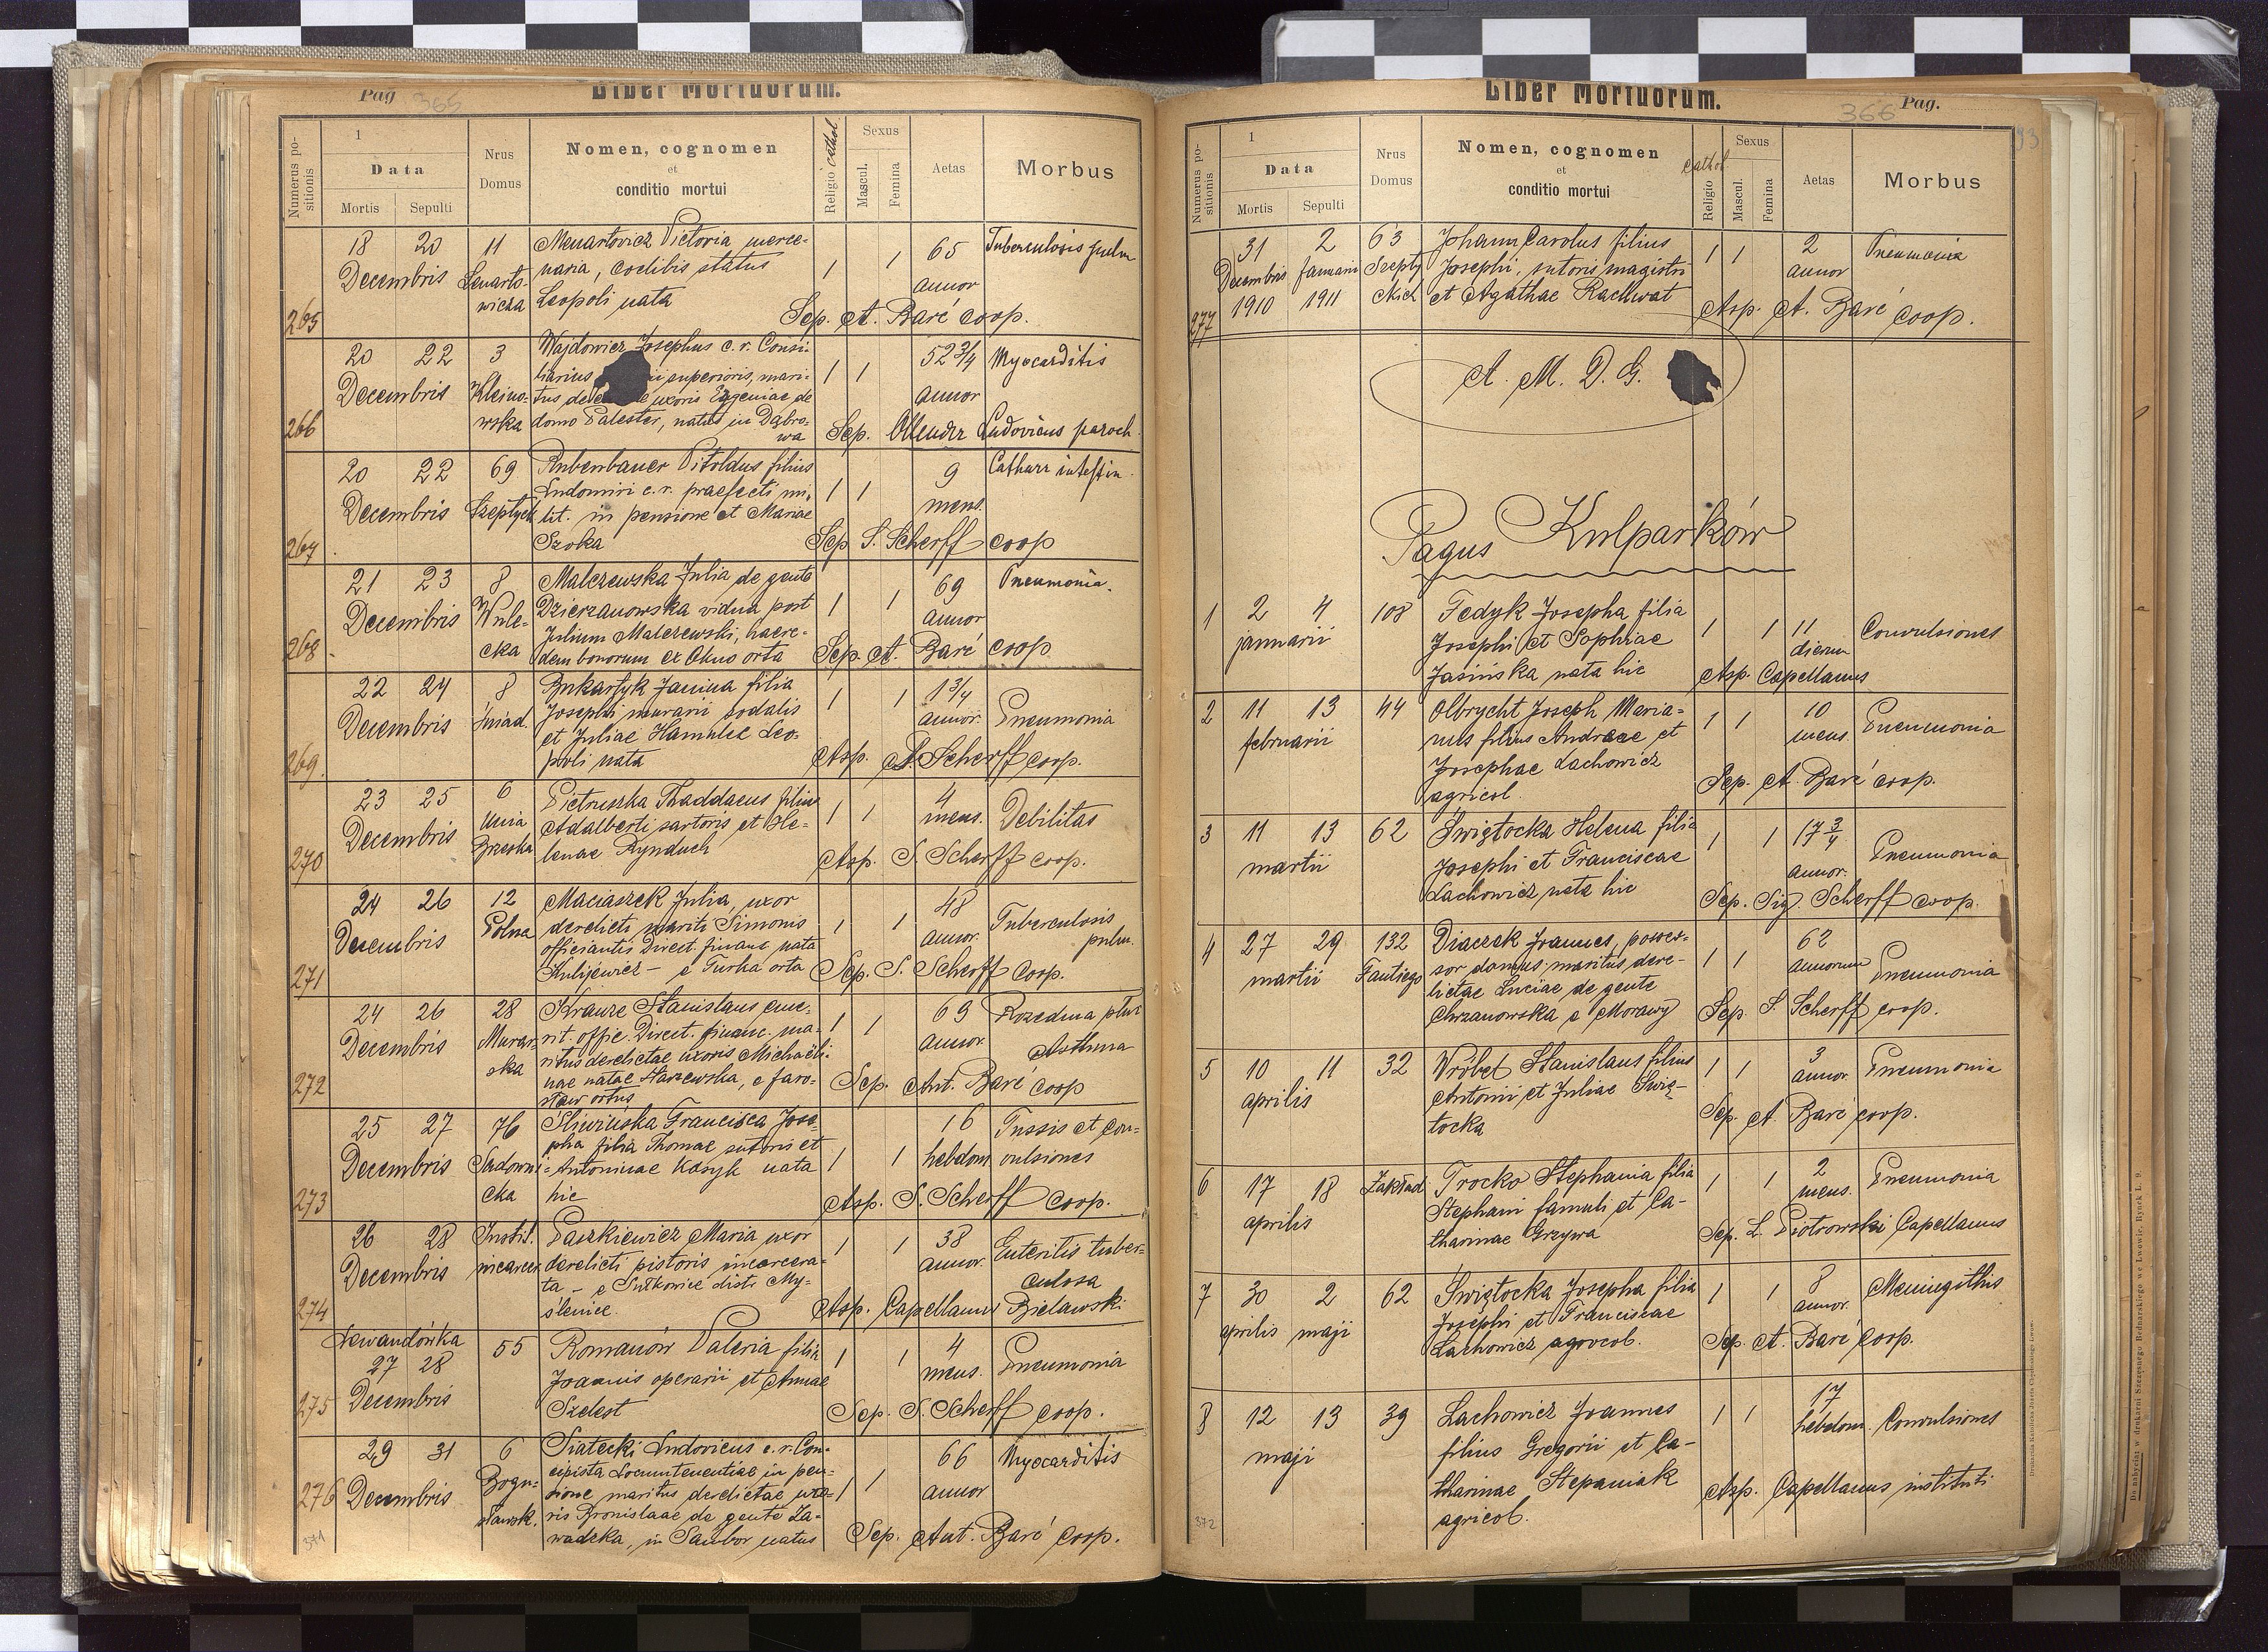 Pag 365
Liber Mortuorum.
Numerus positionis
1
Data
Mortis Sepulti
Nrus Domus
Nomen, cognomen
et
conditio mortui
Religio cathol
Sexus
Mascul. Femina
Aetas
Morbus
265
18 20 11 Menartovicz Victoria merce- 1 1 65 Tuberculosis pulm
Decembris Lenarto- naria, coelibis status annor
wicza Leopoli nata Sep. A. Baré coop.
266
20 22 3 Wajdowicz Josephus c. r. Consi- 1 1 52 3/4 Myocarditis
Decembris Kleino- liarius superioris, mari- annor
wska tus uxoris Eugeniae de
domo Palester, natus in Dąbro-
wa Sep. Ollender Ludovicus paroch.
267
20 22 69 Rubenbauer Vitoldus filius 1 1 9 Catharr intestin.
Decembris Szeptyck Ludomiri c. r. praefecti mi- mens.
lit. in pensione et Mariae
Szoka Sep S. Scherff coop
268
21 23 8 Malczewska Julia de gente 1 1 69 Pneumonia.
Decembris Wule- Dzierzanowska vidua post annor
cka Julium Malczewski, haere-
dem bonorum ex Okno orta Sep. A. Baré coop
269.
22 24 8 Bukartyk Janina filia 1 1 1 3/4 Pneumonia
Decembris Śniad. Josephi murarii sodalis annor.
et Juliae Hamulec Leo-
poli nata Asp. S. Scherff coop.
270
23 25 6 Pietruszka Thaddaeus filius 1 1 4 Debilitas
Decembris Unia Adalberti sartoris et He- mens.
Brzeska lenae Rynduch Asp. S. Scherff coop.
271
24 26 12 Maciaszek Julia, uxor 1 1 48 Tuberculosis
Decembris Polna derelicti mariti Simonis annor. pulm.
officiantis Direct. financ nata
Kulijewicz – e Turka orta Sep. S. Scherff coop.
272
24 26 28 Krauze Stanislaus eme- 1 1 69 Rozedma płuc
Decembris Murar- rit. offic. Direct. financ. ma- annor. Asthma
ska ritus derelictae uxoris Michaëli-
nae natae Starzewska, e Jaro-
sław ortus Sep. Ant. Baré coop
273
25 27 76 Śliwińska Francisca Jose- 1 1 16 Tussis et con-
Decembris Sadowni- pha filia Thomae sutoris et hebdom vulsiones
cka Antoninae Kasyk nata
hic Asp. S. Scherff coop.
274
26 28 Instit. Paszkiewicz Maria uxor 1 1 38 Enteritis tuber-
Decembris incarcer. derelicti pistoris incarcera- annor. culosa
ta – e Sułkowice distr. My-
ślenice. Asp. Capellanus Bielawski
275
Lewandówka
27 28 55 Romanów Valeria filia 1 1 4 Pneumonia
Decembris Joannis operarii et Annae mens.
Szelest Sep. S. Scherff coop.
276
29 31 6 Siatecki Ludovicus c. r. Con- 1 1 66 Myocarditis
Decembris Bogu- cipista Locumtenentiae in pen- annor
sławsk. sione maritus derelictae uxo-
ris Bronislaae de gente Za-
wadzka, in Sambor natus Sep. Ant. Baré coop.
371
Liber Mortuorum.
366 Pag.
93
Numerus positionis
1
Data
Mortis Sepulti
Nrus Domus
Nomen, cognomen
et
conditio mortui
cathol
Religio
Sexus
Mascul. Femina
Aetas
Morbus
277
31 2 63 Johann Carolus filius 1 1 2 Pneumonia
Decembris Januarii Szepty Josephi, sutoris magistri annor
1910 1911 Mich et Agathae Rachwat Asp. A. Baré coop.
A. M. D. G.
Pagus Kulparków
1 2 4 108 Fedyk Josepha filia 1 1 11 Convulsiones
januarii Josephi et Sophiae dierum
Jasińska nata hic Asp. Capellanus
2 11 13 44 Olbrycht Joseph Maria- 1 1 10 Pneumonia
februarii nus filius Andreae et mens.
Josephae Lachowicz
agricol. Sep. A. Baré coop.
3 11 13 62 Świętocka Helena filia 1 1 17 3/4 Pneumonia
martii Josephi et Franciscae annor.
Lachowicz nata hic Sep. Sig. Scherff coop.
4 27 29 132 Diaczek Joannes, posses- 1 1 62 Pneumonia
martii sor domus maritus dere- annorum
lictae Luciae de gente
Chrzanowska e Morawy Sep. S. Scherff coop.
5 10 11 32 Wróbel Stanislaus filius 1 1 3 Pneumonia
aprilis Antonii et Juliae Świę- annor.
tocka Sep. A. Baré coop.
6 17 18 Zakład Trocko Stephania filia 1 1 2 Pneumonia
aprilis Stephani famuli et Ca- mens.
tharinae Grzywa Sep. L. Piotrowski Capellanus
7 30 2 62 Świętocka Josepha filia 1 1 8 Meningitis
aprilis maji Josephi et Franciscae annor.
Lachowicz agricol. Sep. A. Baré coop.
8 12 13 39 Lachowicz Joannes 1 1 17 Convulsiones
maji filius Gregorii et Ca- hebdom.
tharinae Stepaniak
agricol. Asp. Capellanus instituti
372
Do nabycia w drukarni Szczęsnego Bednarskiego we Lwowie, Rynek L. 9.